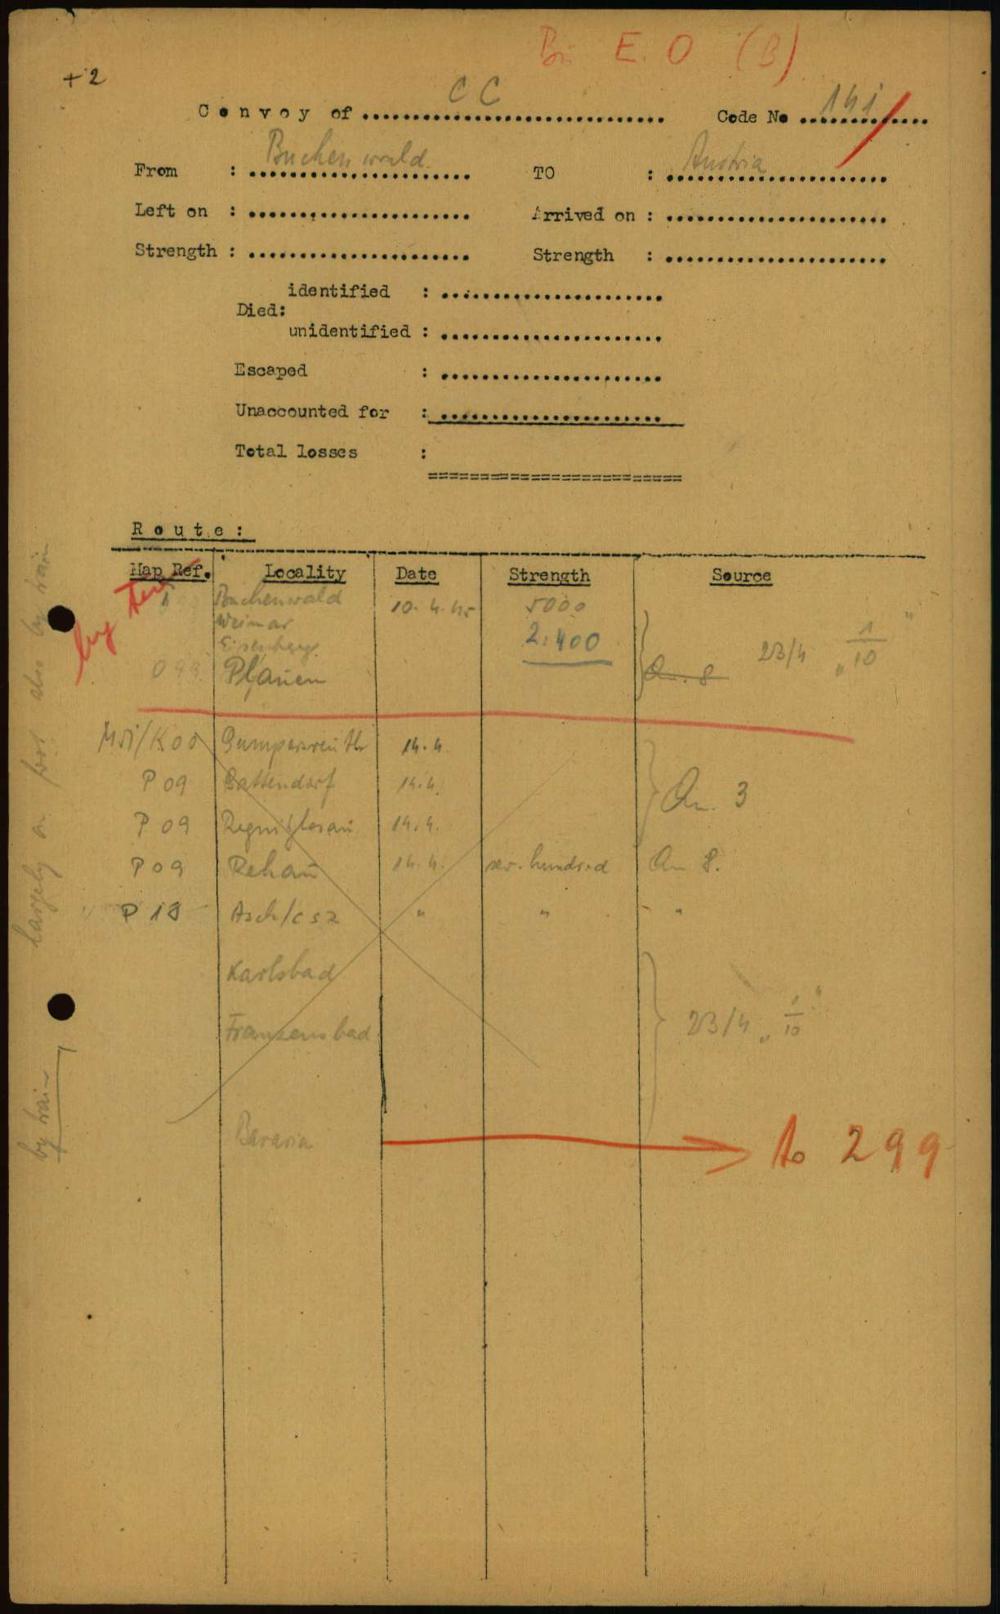 E. O (B)
+ 2
Convoy of .............................. CC Code No ............. 141
From : ...................... Buchenwald TO : ...................... Austria
Left on : ...................... Arrived on : ......................
Strength : ...................... Strength : ......................
Died:
identified : ......................
unidentified : ......................
Escaped : ......................
Unaccounted for : ......................
Total losses :
=========================
Route:
Map Ref. Locality Date Strength Source
Buchenwald 10.4.45 5000
Weimar 2.400 23/4 " 1/10 "
Eisenberg
Plauen An. 8
Gumpersreuth 14.4.
P 09 Gattendorf 14.4. An. 3
P 09 Regnitzlosau 14.4.
P 09 Rehau 14.4. sev. hundred An 8.
P 18 Asch/CSR " " "
Karlsbad
Franzensbad 23/4 " 1/10 "
Bavaria to 299
largely on foot also by train
by train